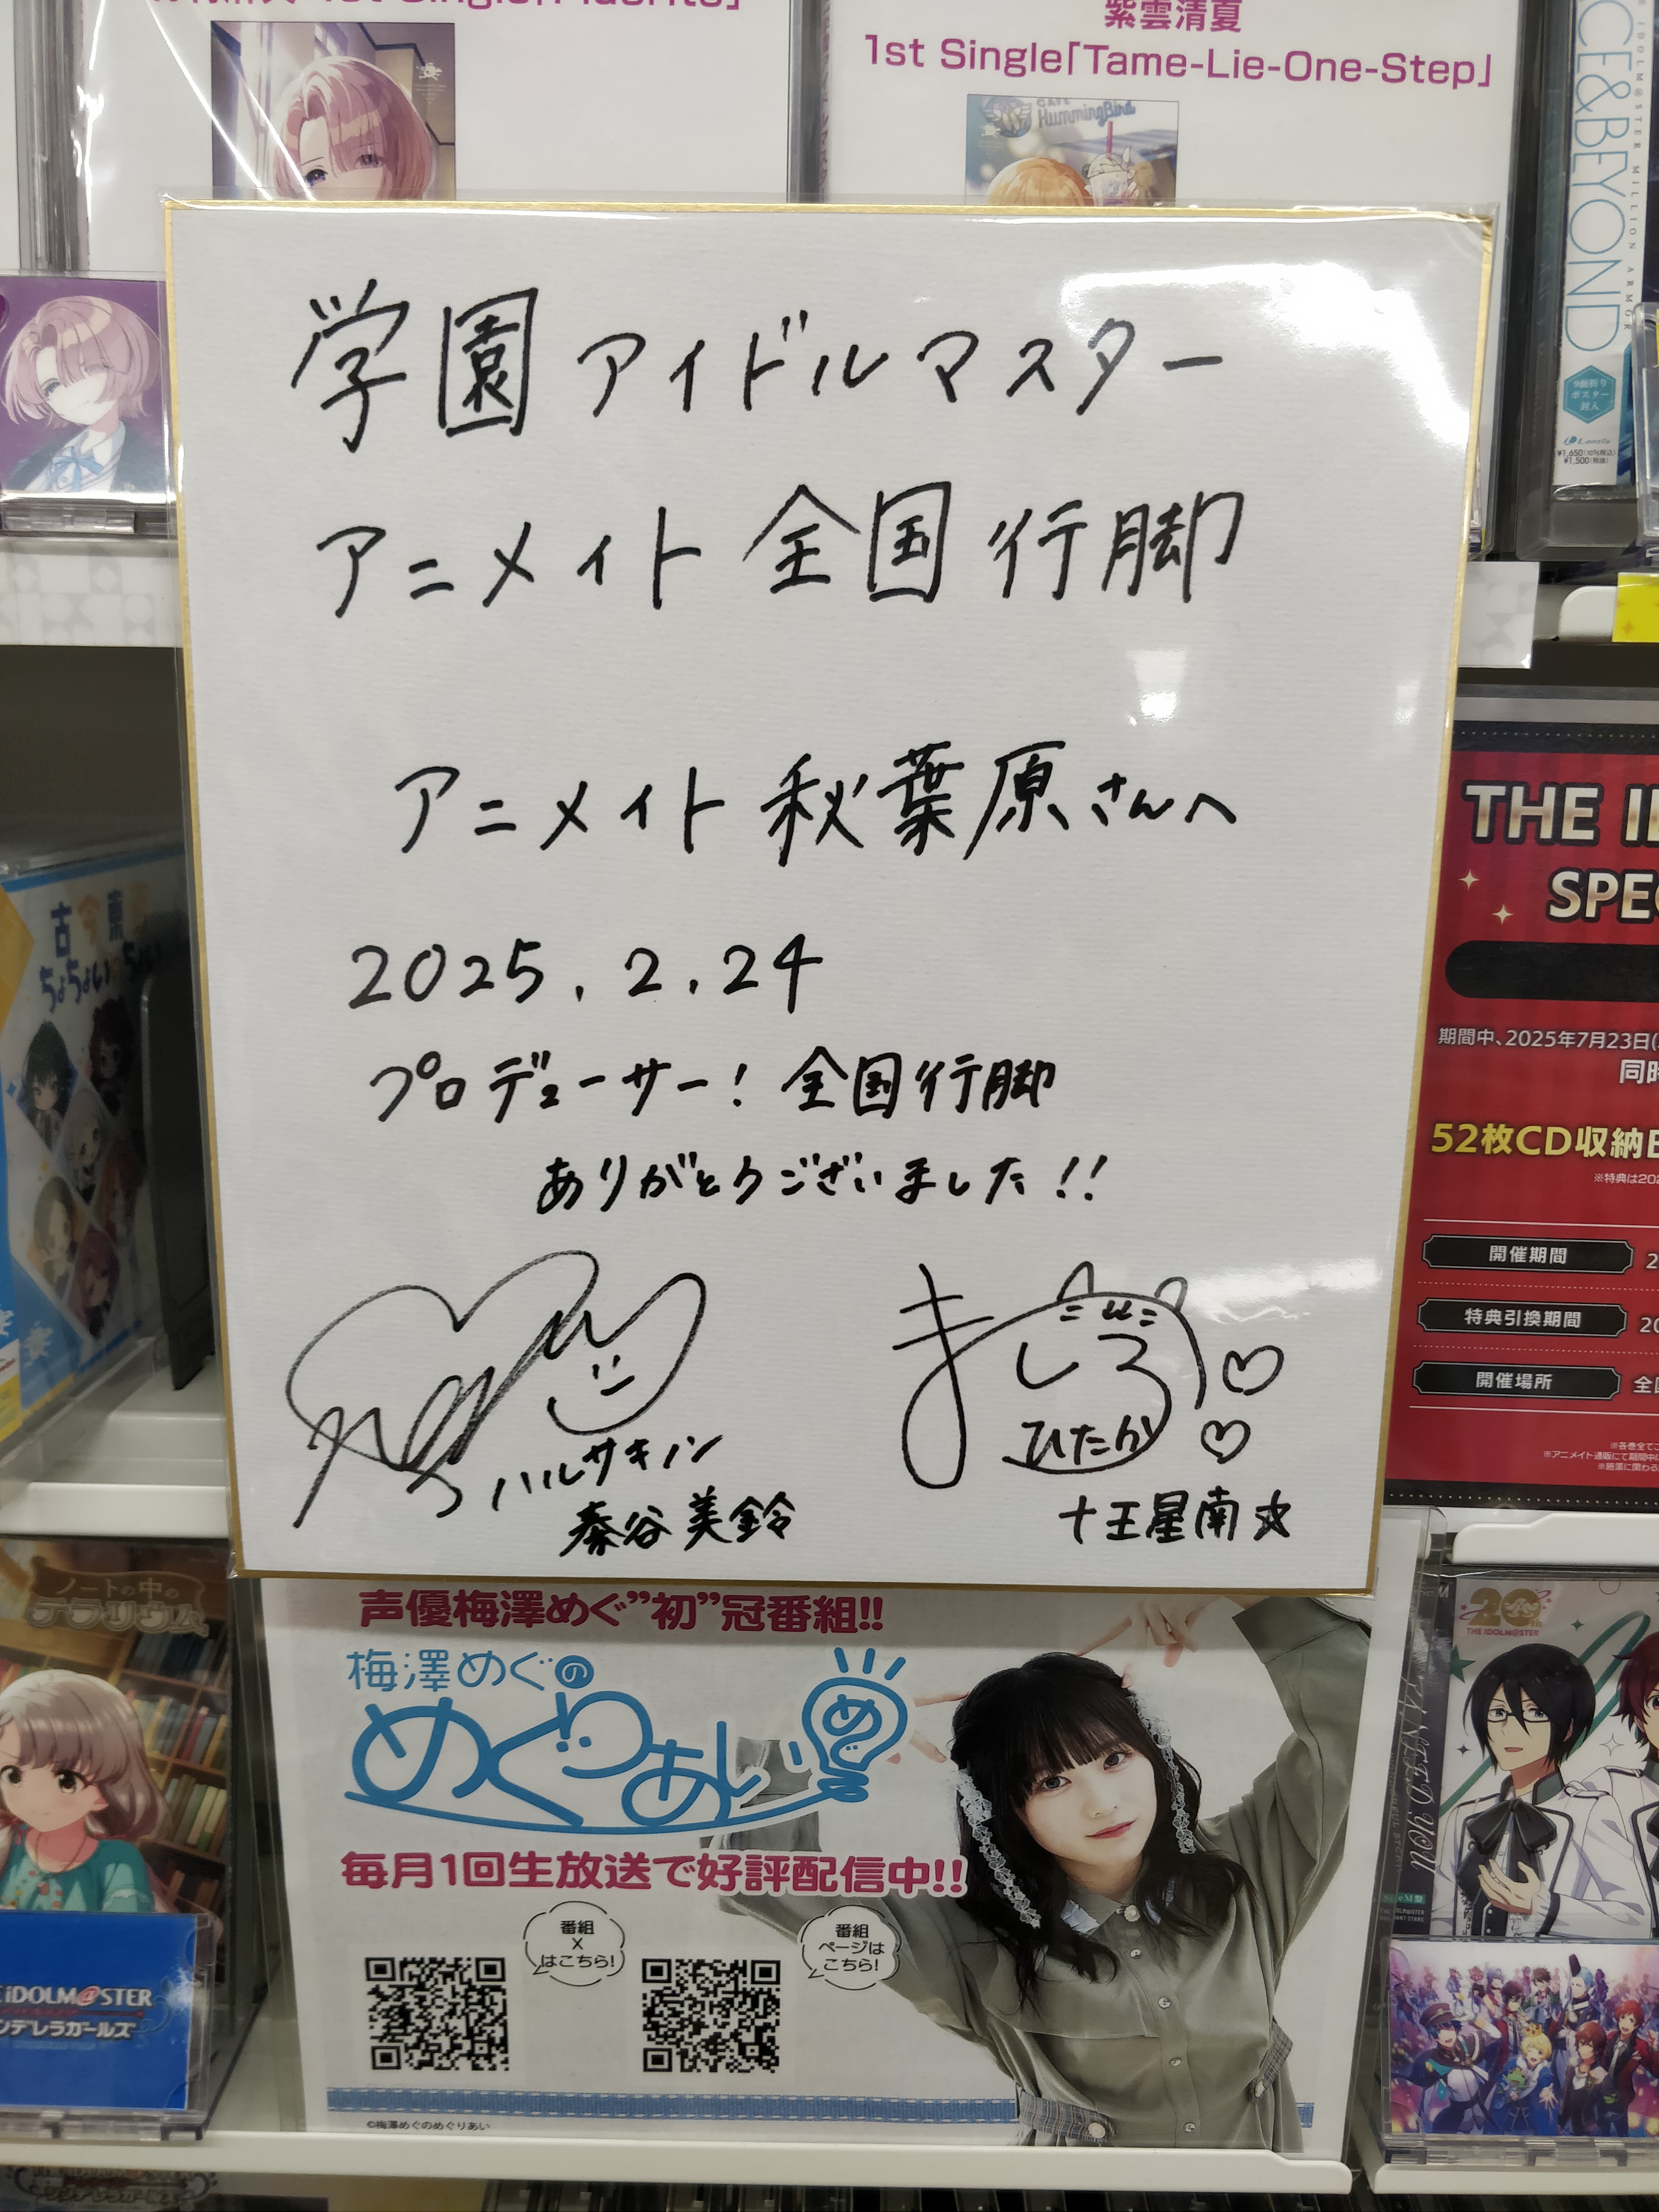 1st Single「
紫雲清夏
1st Single「Tame-Lie-One-Step」
HummingBird
CE&BEYOND
9面折り
ポスター
封入
Lantis
¥1,650(10%税込)
¥1,500(税抜)
学園アイドルマスター
アニメイト全国行脚
アニメイト秋葉原さんへ
2025.2.24
プロデューサー!全国行脚
ありがとうございました!!
ハルサキノン
秦谷美鈴
ましろ
ひたか
十王星南☆
古今東
ちょちょいの
THE I
SPE
期間中、2025年7月23日(
同時
52枚CD収納
開催期間
2
特典引換期間
20
開催場所
全国
声優梅澤めぐ"初"冠番組!!
梅澤めぐの
めぐりあい
め
毎月1回生放送で好評配信中!!
番組
X
はこちら!
番組
ページは
こちら!
©梅澤めぐのめぐりあい
ノートの中の
テラリウム
iDOLM@STER
ンデレラガールズ
20th
THE IDOLM@STER